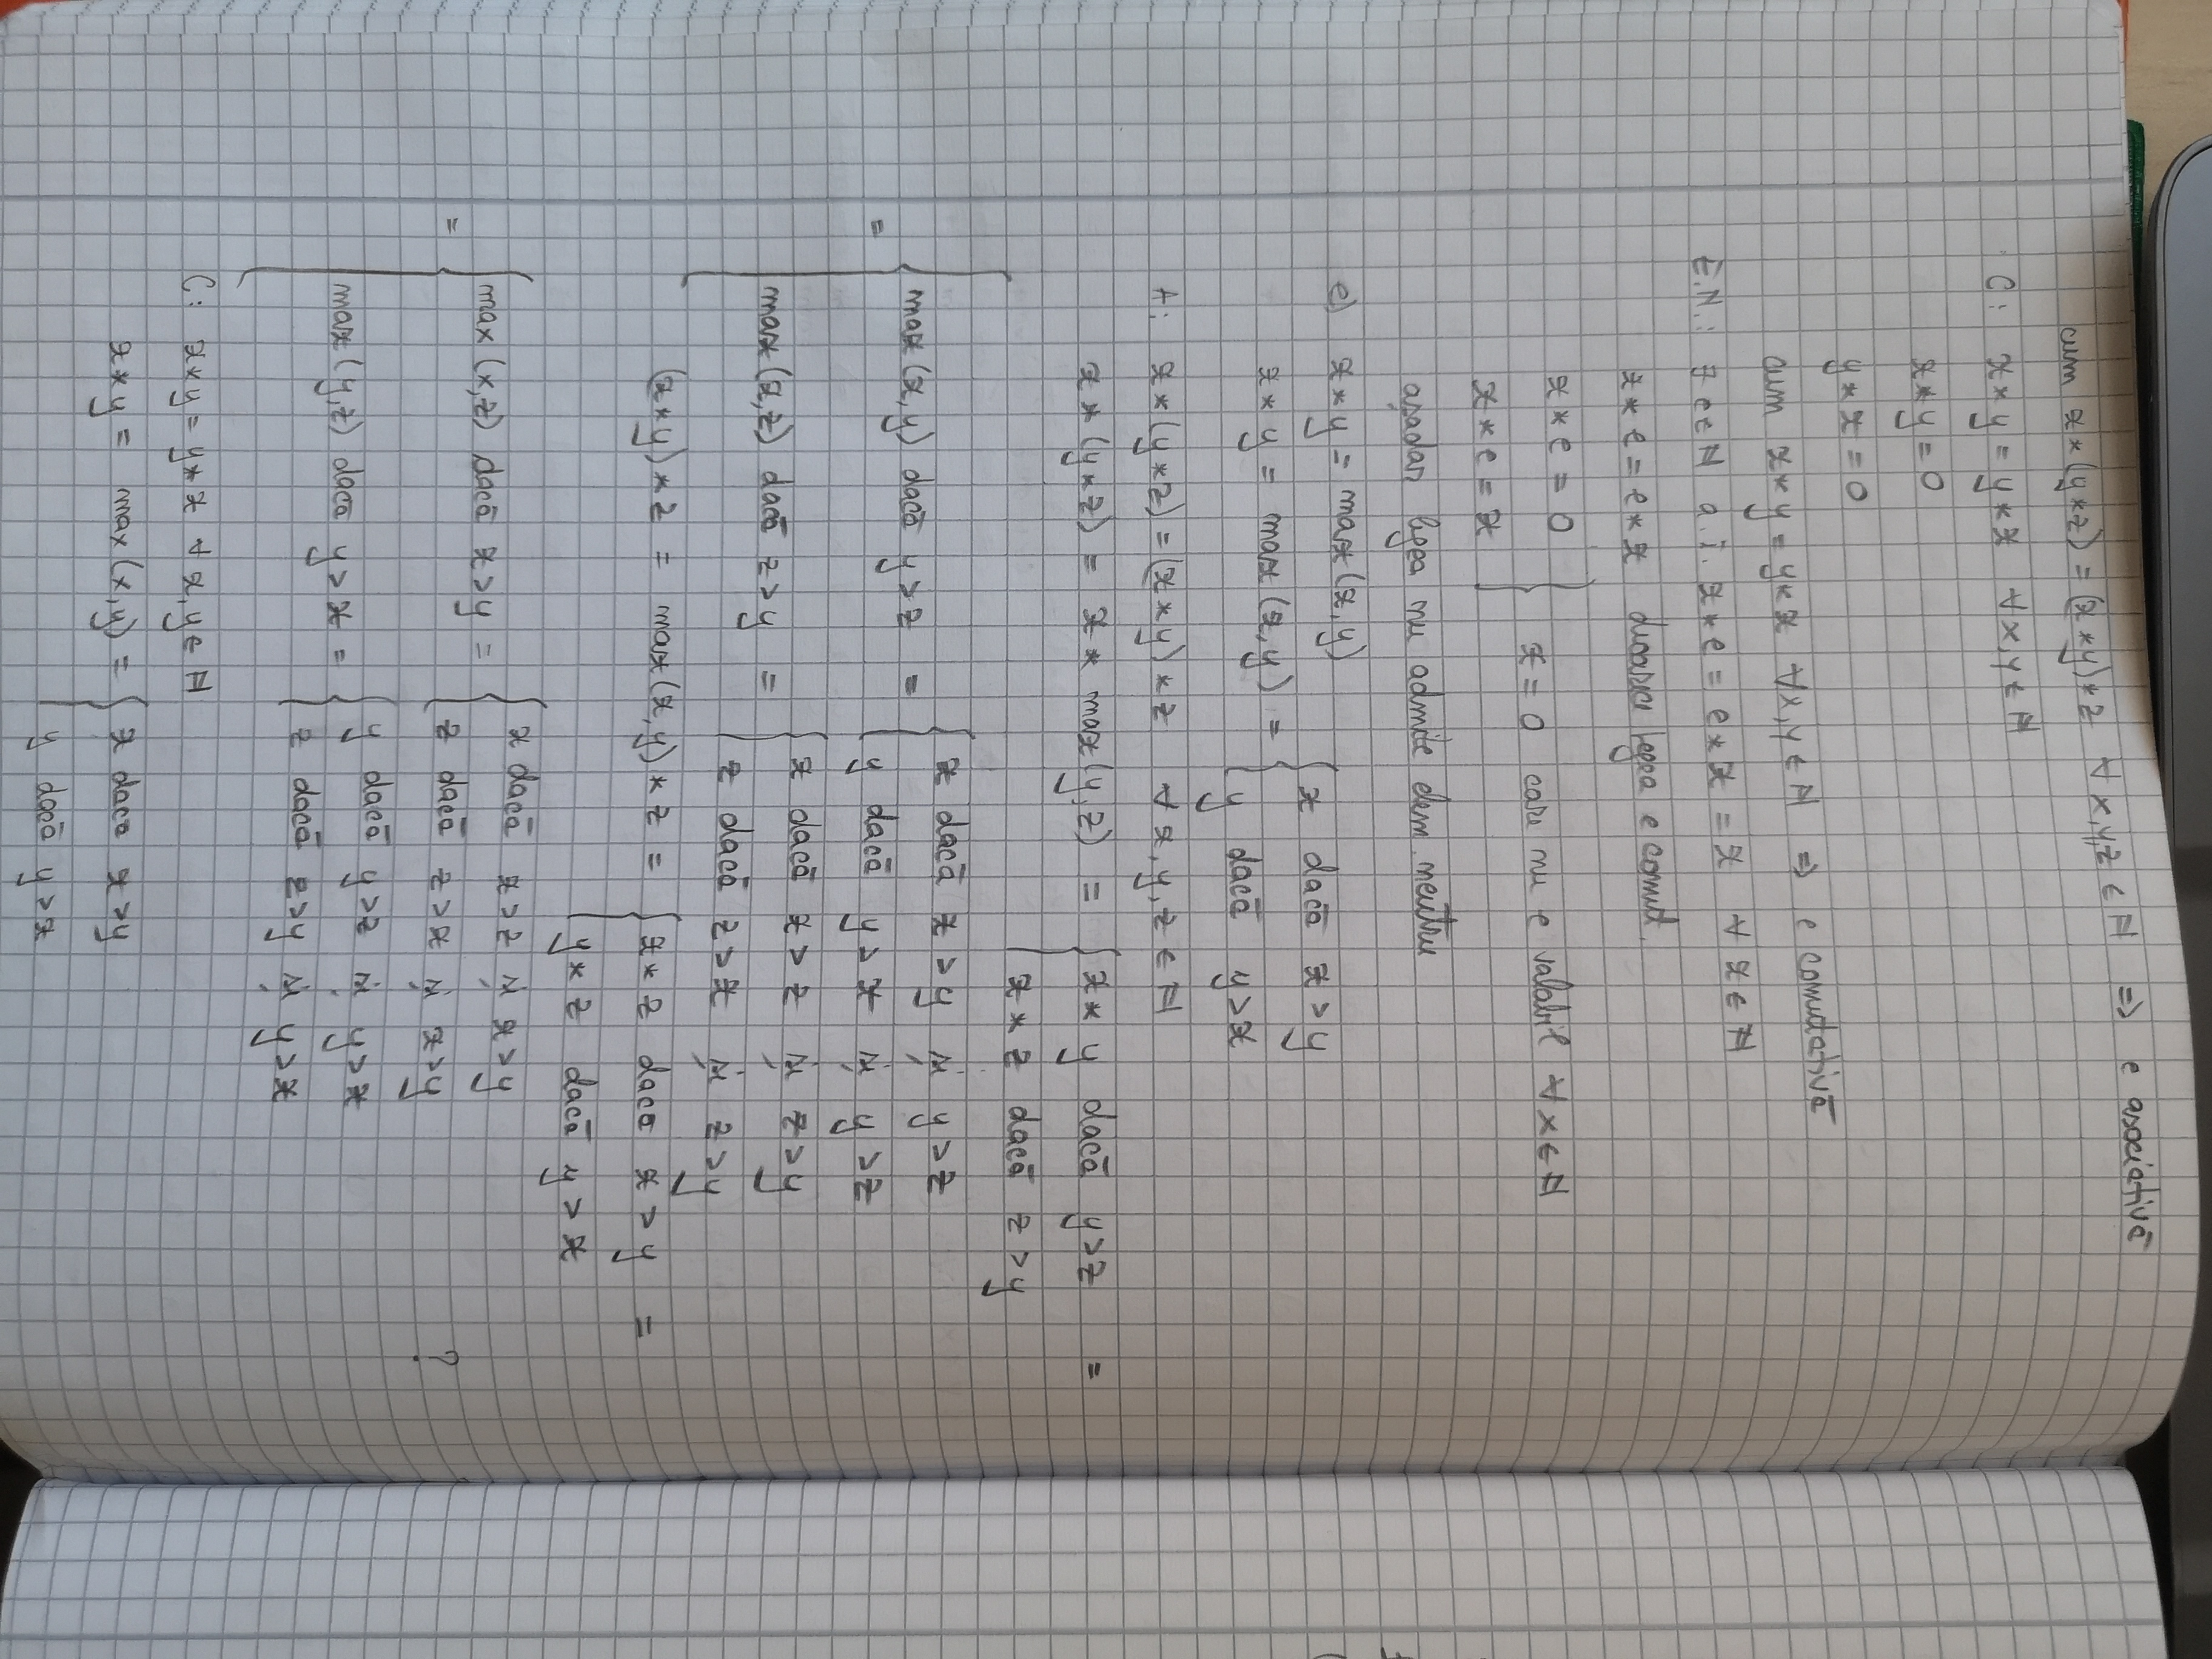 cum x * (y * z) = (x * y) * z ∀ x, y, z ∈ ℕ ⇒ e asociativă
C: x * y = y * x ∀ x, y ∈ ℕ
x * y = 0
y * x = 0
cum x * y = y * x ∀ x, y ∈ ℕ ⇒ e comutativă
E.N.: ∃ e ∈ ℕ a.î. x * e = e * x = x ∀ x ∈ ℕ
x * e = e * x deoarece legea e comut.
x * e = 0
x = 0 care nu e valabil ∀ x ∈ ℕ
x * e = x
așadar legea nu admite elem. neutru
e) x * y = max(x, y)
x * y = max(x, y) = { x dacă x > y
y dacă y > x
A: x * (y * z) = (x * y) * z ∀ x, y, z ∈ ℕ
x * (y * z) = x * max(y, z) = { x * y dacă y > z =
x * z dacă z > y
= { max(x, y) dacă y > z = { x dacă x > y și y > z
y dacă y > x și y > z
max(x, z) dacă z > y = { x dacă x > z și z > y
z dacă z > x și z > y
(x * y) * z = max(x, y) * z = { x * z daca x > y =
y * z dacă y > x
= { max(x, z) dacă x > y = { x dacă x > z și x > y
z dacă z > x și x > y ?
max(y, z) dacă y > x = { y dacă y > z și y > x
z dacă z > y și y > x
C: x * y = y * x ∀ x, y ∈ ℕ
x * y = max(x, y) = { x daca x > y
y dacă y > x